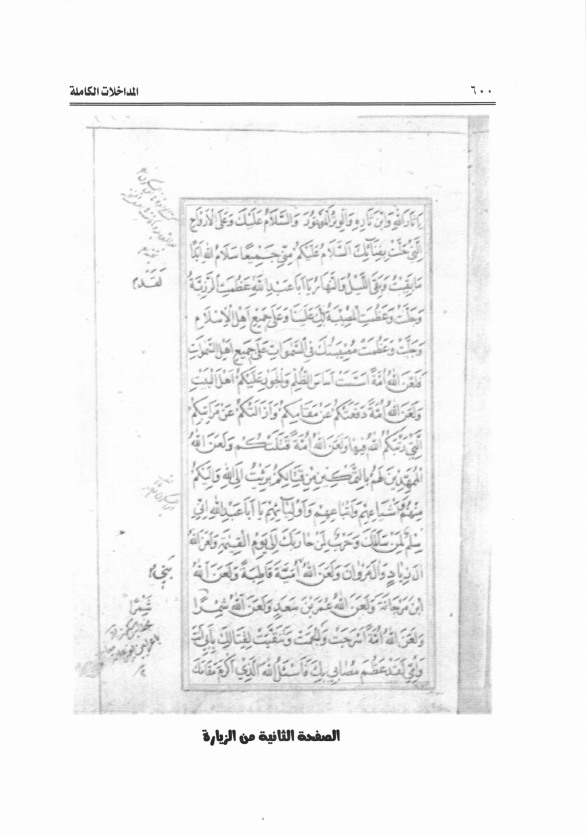 المداخلات الكاملة
٦٠٠
يا ثار الله وابن ثاره والوتر الموتور السلام عليك وعلى الارواح
التي حلت بفنائك السلام عليكم مني جميعا سلام الله ابدا
ما بقيت وبقي الليل والنهار يا ابا عبد الله عظمت الرزية
وجلت وعظمت المصيبة بك علينا وعلى جميع اهل الاسلام
وجلت وعظمت مصيبتك في السموات على جميع اهل السموات
فلعن الله امة اسست اساس الظلم والجور عليكم اهل البيت
ولعن الله امة دفعتكم عن مقامكم وازالتكم عن مراتبكم
التي رتبكم الله فيها ولعن الله امة قتلتكم ولعن الله
الممهدين لهم بالتمكين من قتالكم برئت الى الله واليكم
منهم واشياعهم واتباعهم واوليائهم يا ابا عبد الله اني
سلم لمن سالمك وحرب لمن حاربك الى يوم القيمة ولعن الله
ال زياد وال مروان ولعن الله امية قاطبة ولعن الله
ابن مرجانة ولعن الله عمر بن سعد ولعن الله شمرا
ولعن الله امة اسرجت والجمت وتنقبت لقتالك بابي انت
وامي لقد عظم مصابي بك فاسئل الله الذي اكرم مقامك
لقد
بني
شمرا
الصفحة الثانية من الزيارة